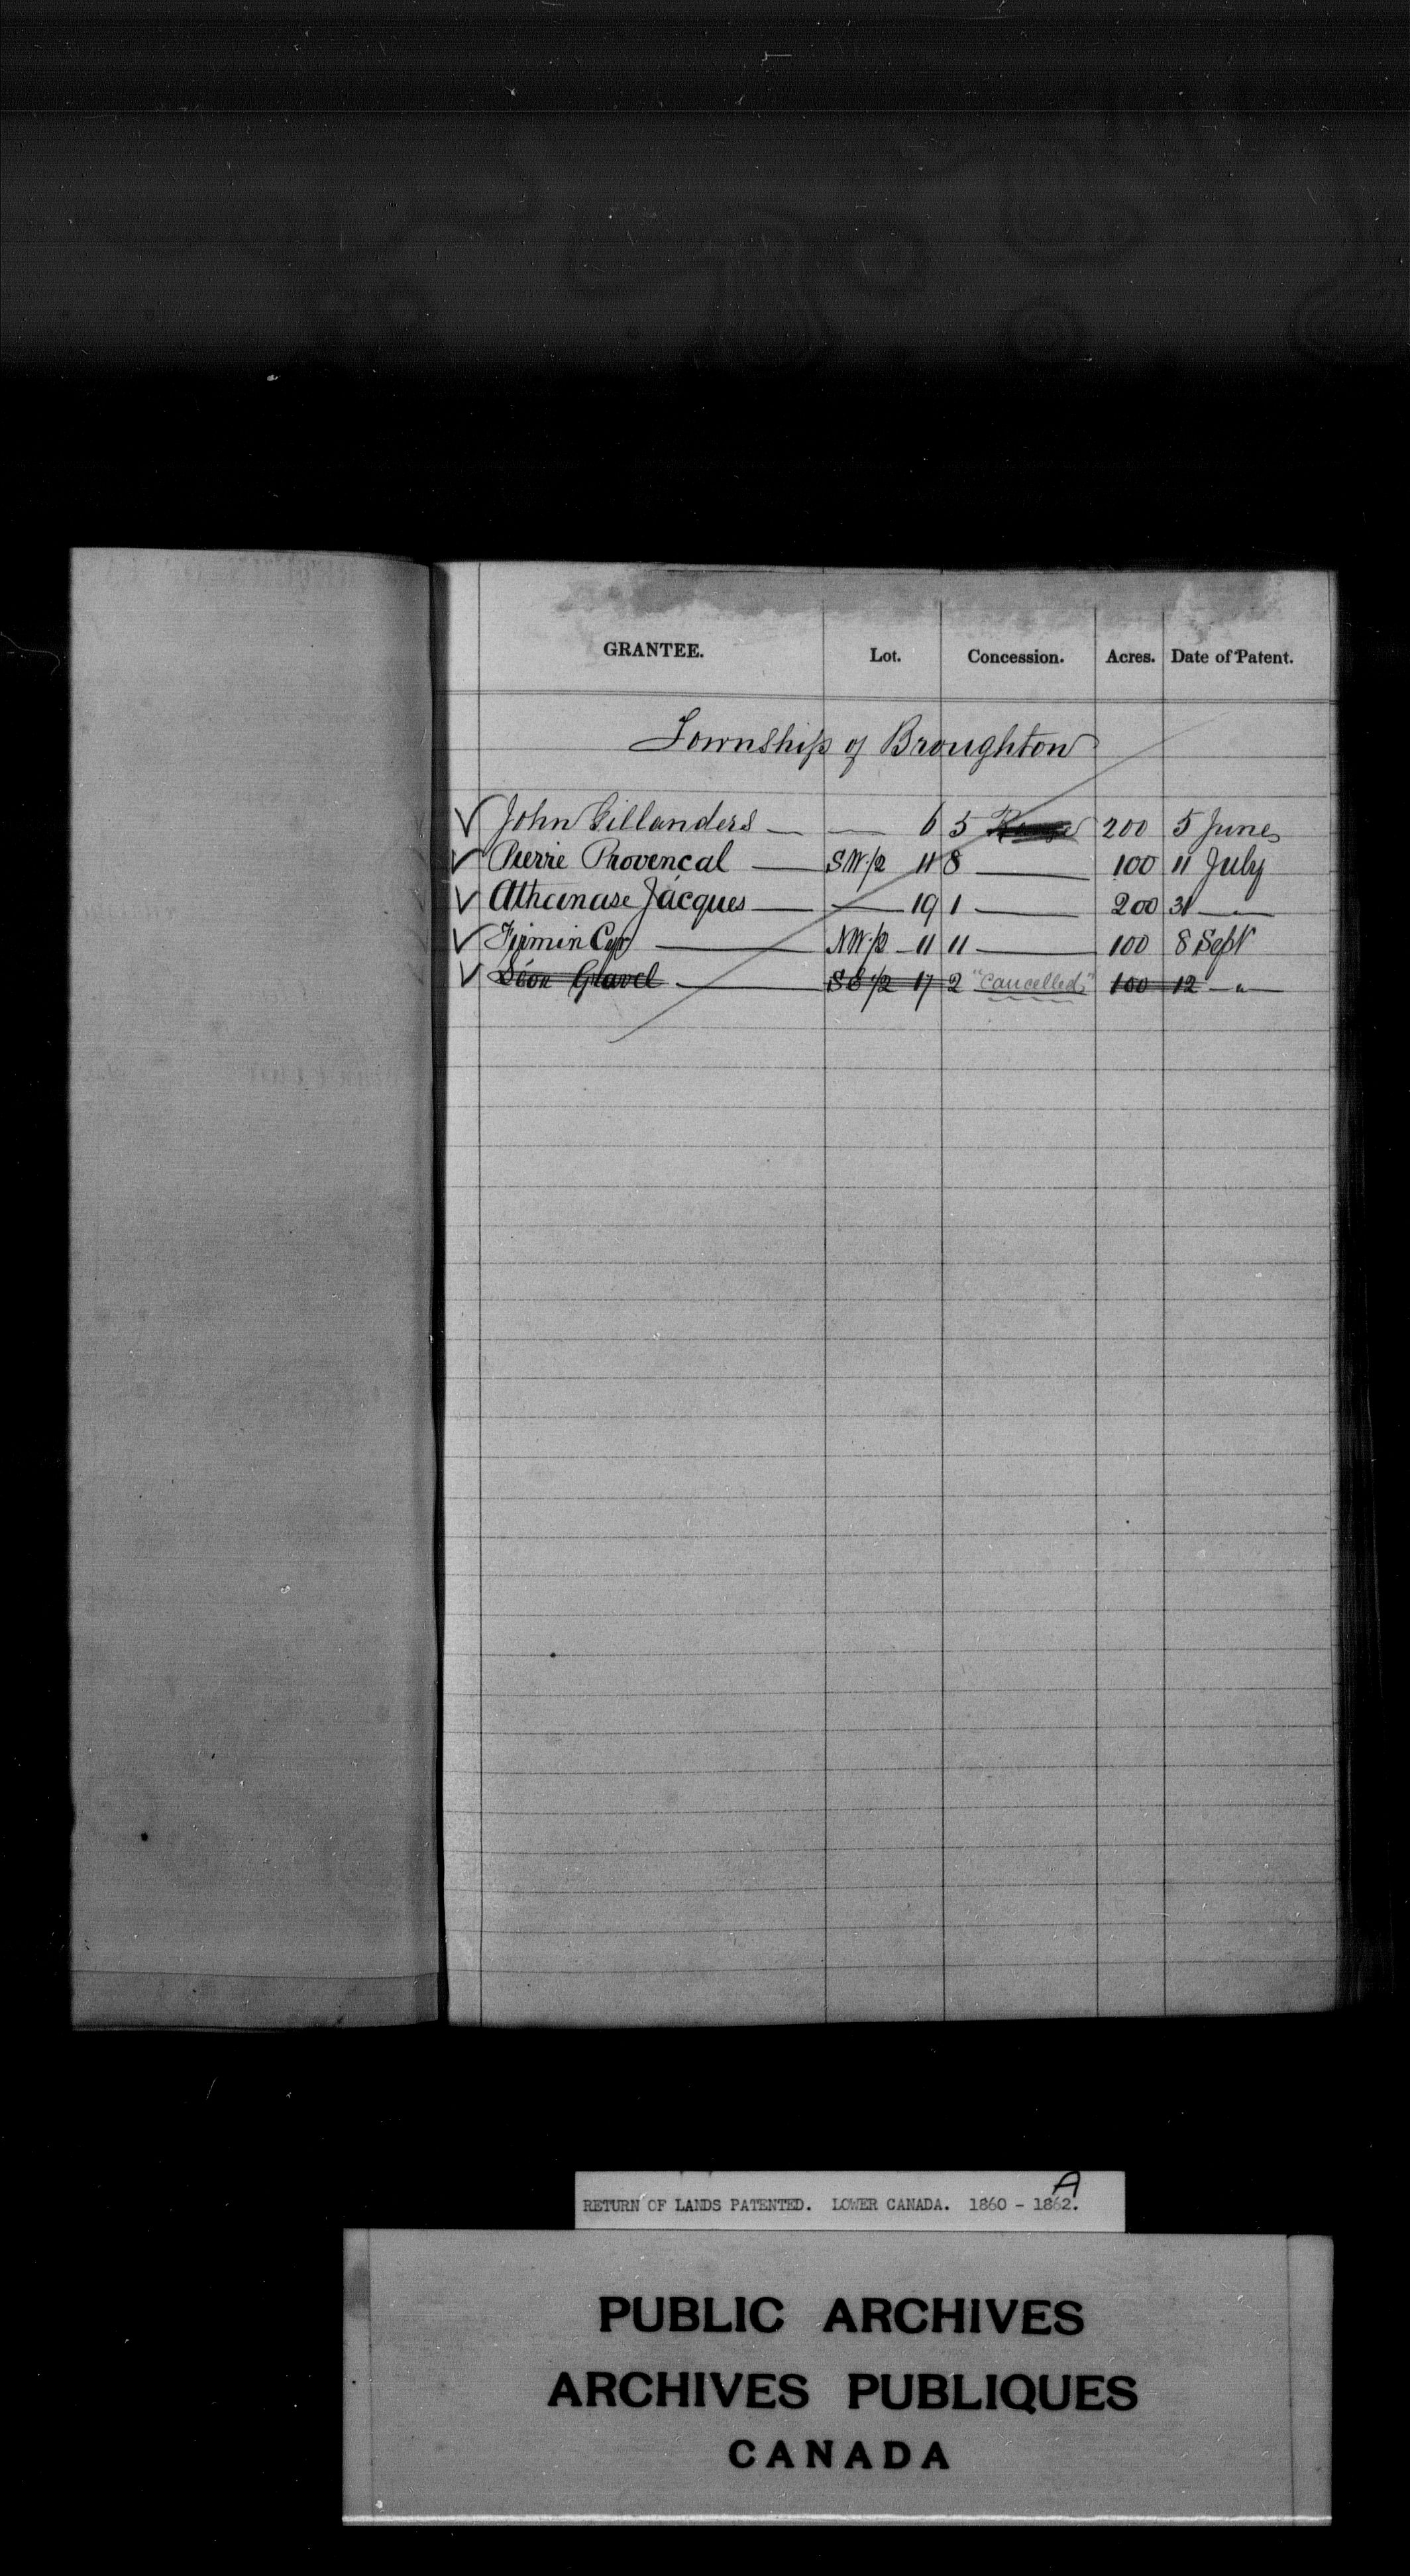 GRANTEE. Lot. Concession. Acres. Date of Patent.
Township of Broughton
✓ John Gillanders — — 6 5 Range 200 5 June
✓ Pierre Provencal — SW 1/2 11 8 — 100 11 July
✓ Athanase Jacques — — 19 1 — 200 31 — "
✓ Firmin Cyr — NW 1/2 — 11 11 — 100 8 Sept
✓ Léon Gravel — SE 1/2 17 2 "Cancelled" 100 12 — "
A
RETURN OF LANDS PATENTED. LOWER CANADA. 1860 - 1862.
PUBLIC ARCHIVES
ARCHIVES PUBLIQUES
CANADA